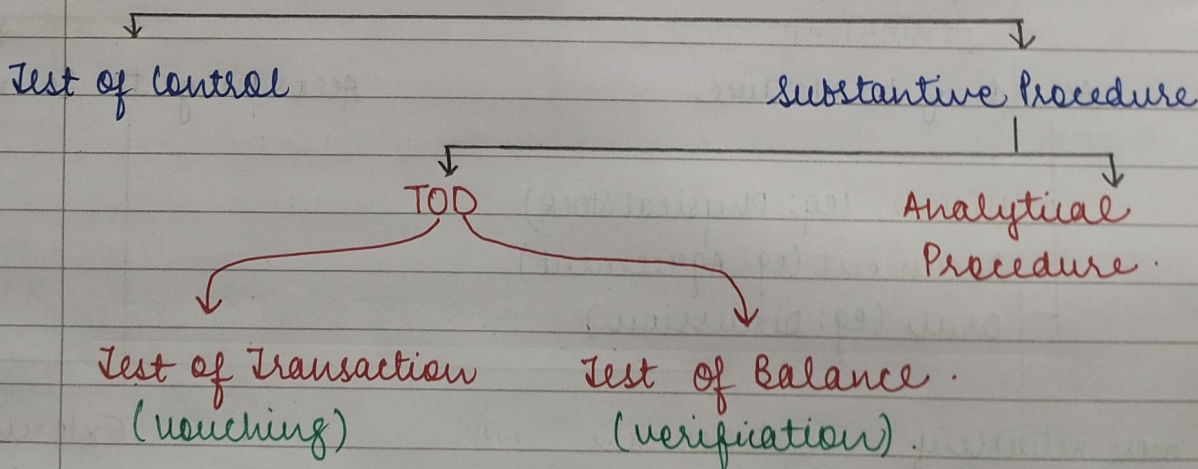 Test of Control
Substantive Procedure
TOD
Analytical
Procedure.
Test of Transaction
Test of Balance.
(vouching)
(verification).